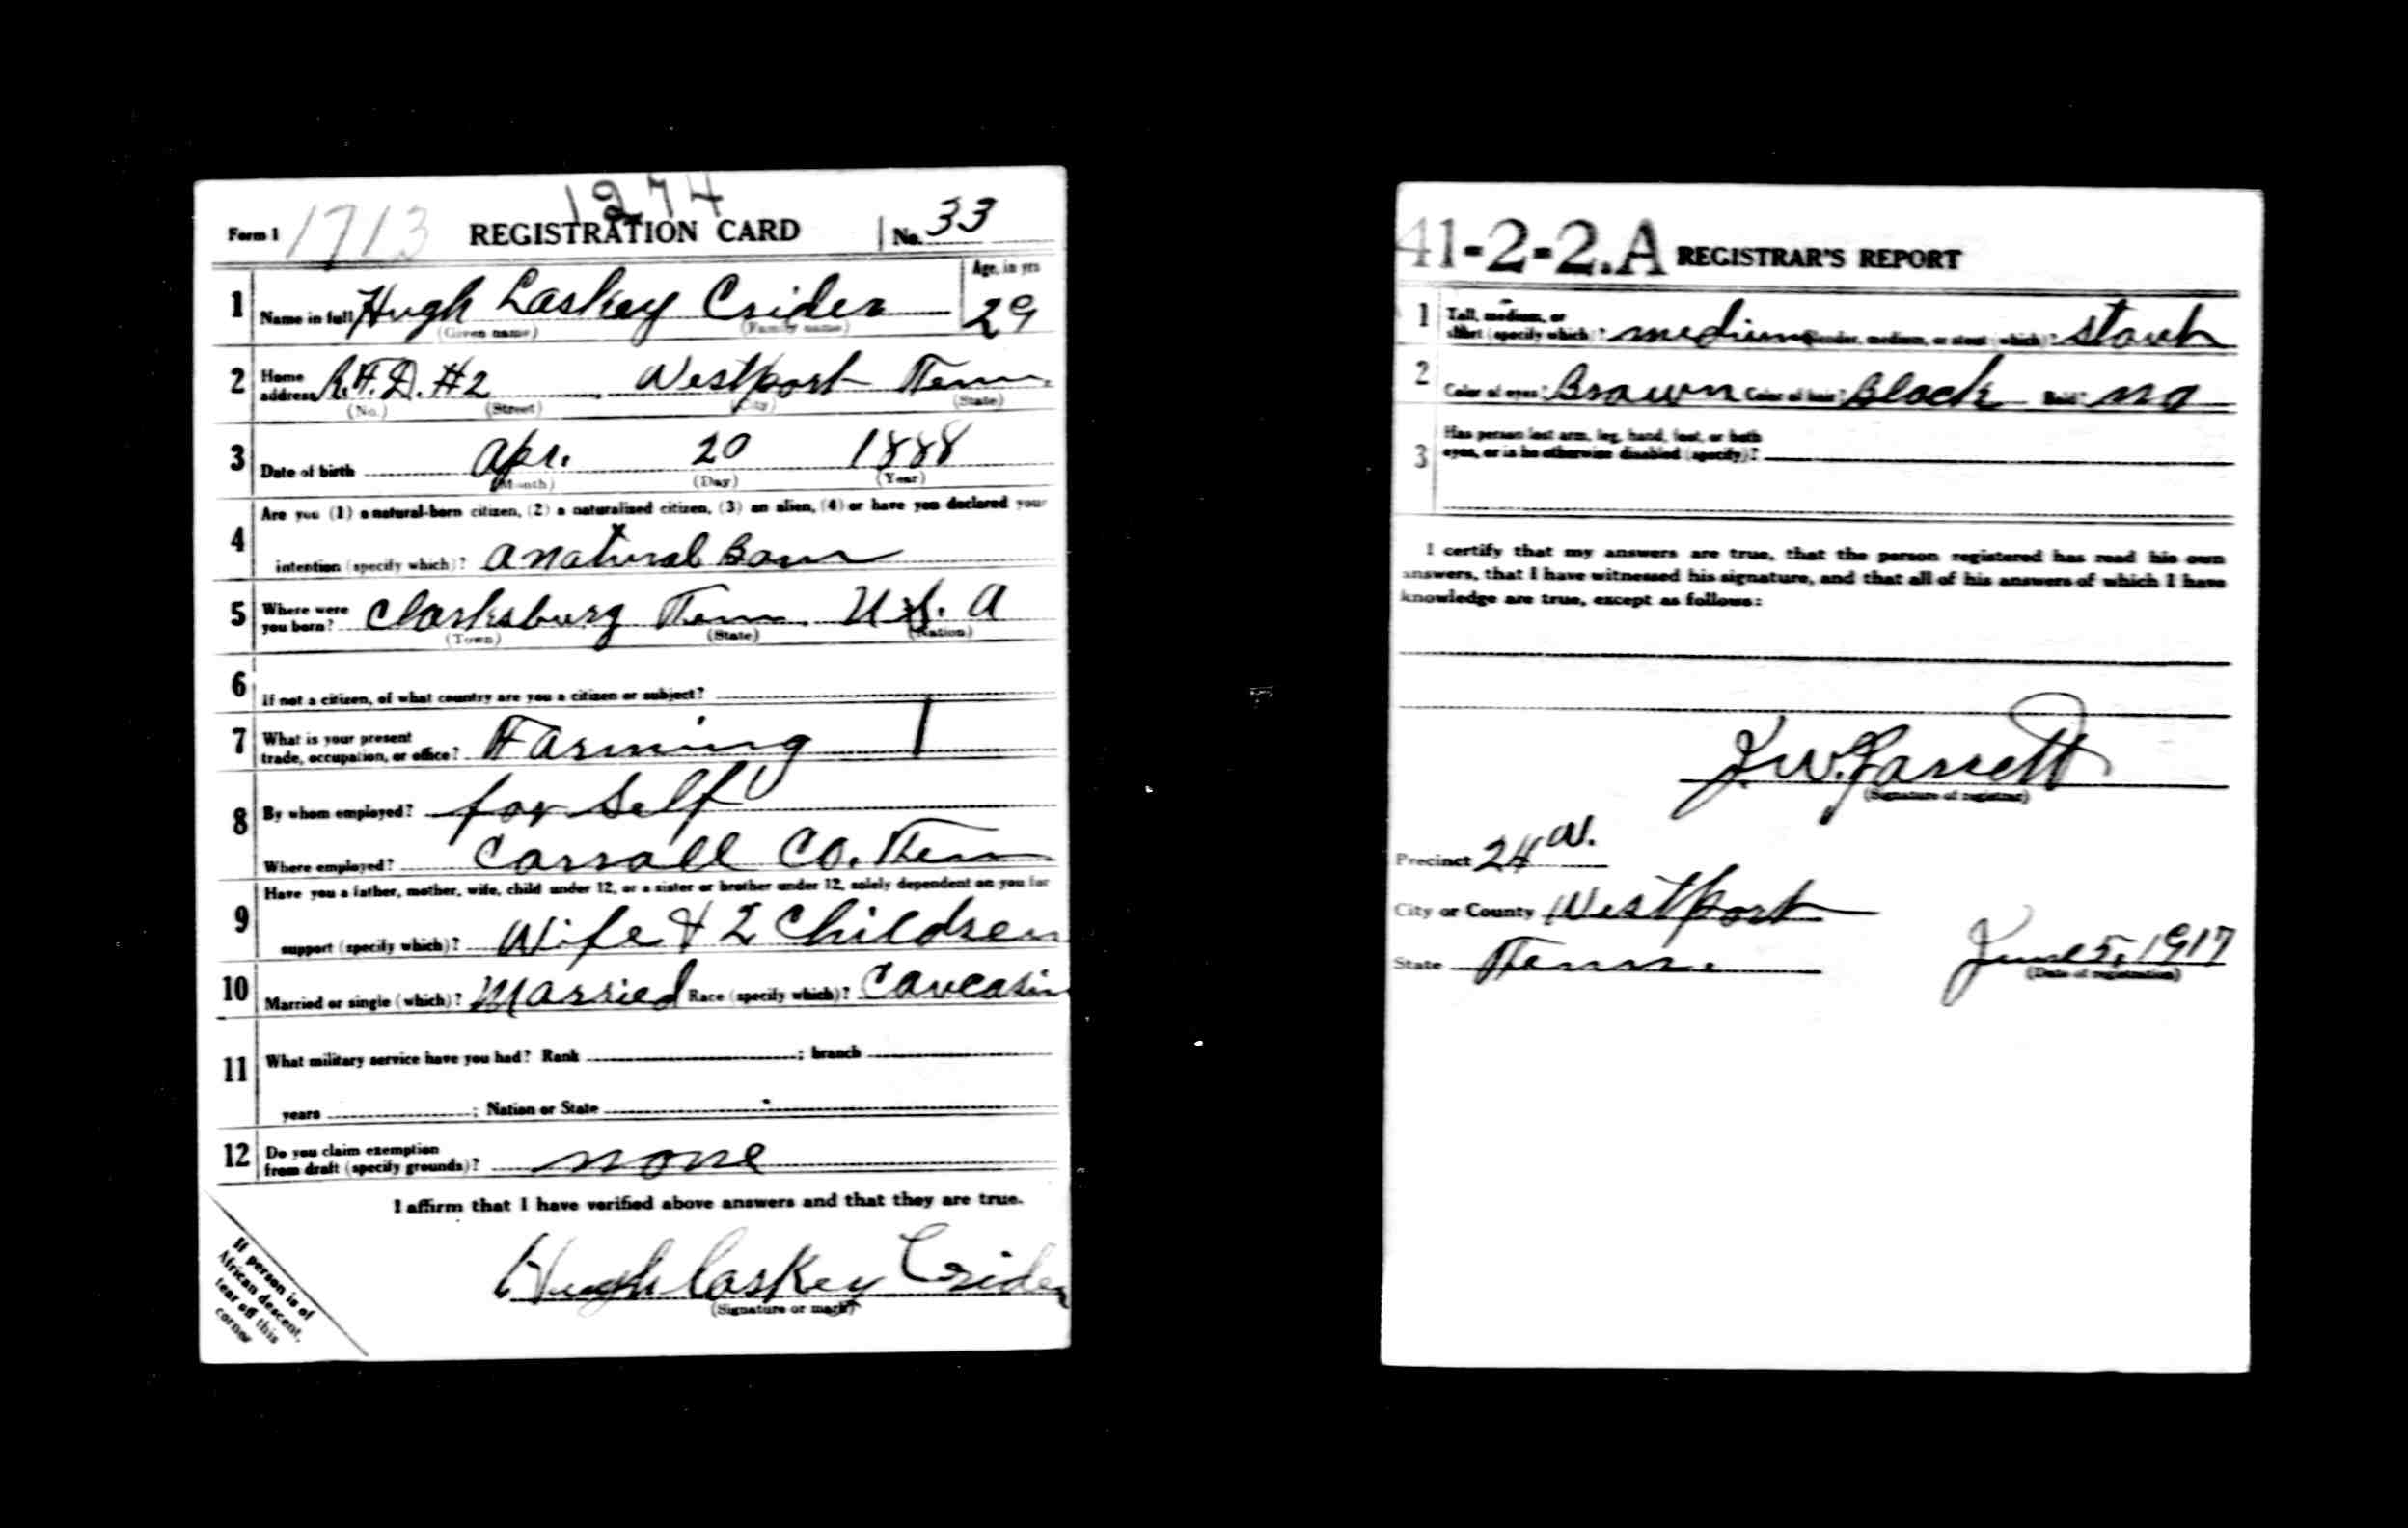 1274
Form 1 1713 REGISTRATION CARD No. 33
1 Name in full Hugh Laskey Crider Age, in yrs 29
(Given name) (Family name)
2 Home address R.F.D. #2 Westport Tenn.
(No.) (Street) (City) (State)
3 Date of birth Apr. 20 1888
(Month) (Day) (Year)
4 Are you (1) a natural-born citizen, (2) a naturalized citizen, (3) an alien, (4) or have you declared your
intention (specify which)? A natural Born
5 Where were you born? Clarksburg Tenn. U.S. A
(Town) (State) (Nation)
6 If not a citizen, of what country are you a citizen or subject?
7 What is your present
trade, occupation, or office? Farming
8 By whom employed? for Self
Where employed? Carroll Co. Tenn
9 Have you a father, mother, wife, child under 12, or a sister or brother under 12, solely dependent on you for
support (specify which)? Wife & 2 Children
10 Married or single (which)? Married Race (specify which)? Caucasin
11 What military service have you had? Rank ; branch
years ; Nation or State
12 Do you claim exemption
from draft (specify grounds)? none
I affirm that I have verified above answers and that they are true.
Hugh Laskey Crider
(Signature or mark)
If person is of
African descent,
tear off this
corner
41-2-2.A REGISTRAR'S REPORT
1 Tall, medium, or
short (specify which)? medium Slender, medium, or stout (which)? stout
2 Color of eyes? Brown Color of hair? Black Bald? no
3 Has person lost arm, leg, hand, foot, or both
eyes, or is he otherwise disabled (specify)?
I certify that my answers are true, that the person registered has read his own
answers, that I have witnessed his signature, and that all of his answers of which I have
knowledge are true, except as follows:
J.W. Garrett
(Signature of registrar)
Precinct 24
City or County Westport
State Tenn.
June 5, 1917
(Date of registration)